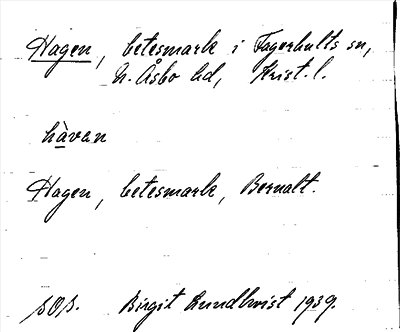 Hagen, betesmark i Fagerhults sn,
N. Åsbo hd, Krist. l.
hàvan
Hagen, betesmark, Bernalt.
sOs. Birgit Lundkvist 1939.